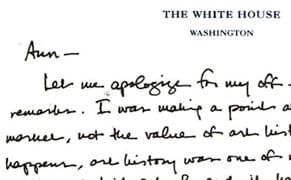 THE WHITE HOUSE
WASHINGTON
Ann —
Let me apologize for my off-
remarks. I was making a point a
market, not the value of art hist
happens, art history was one of